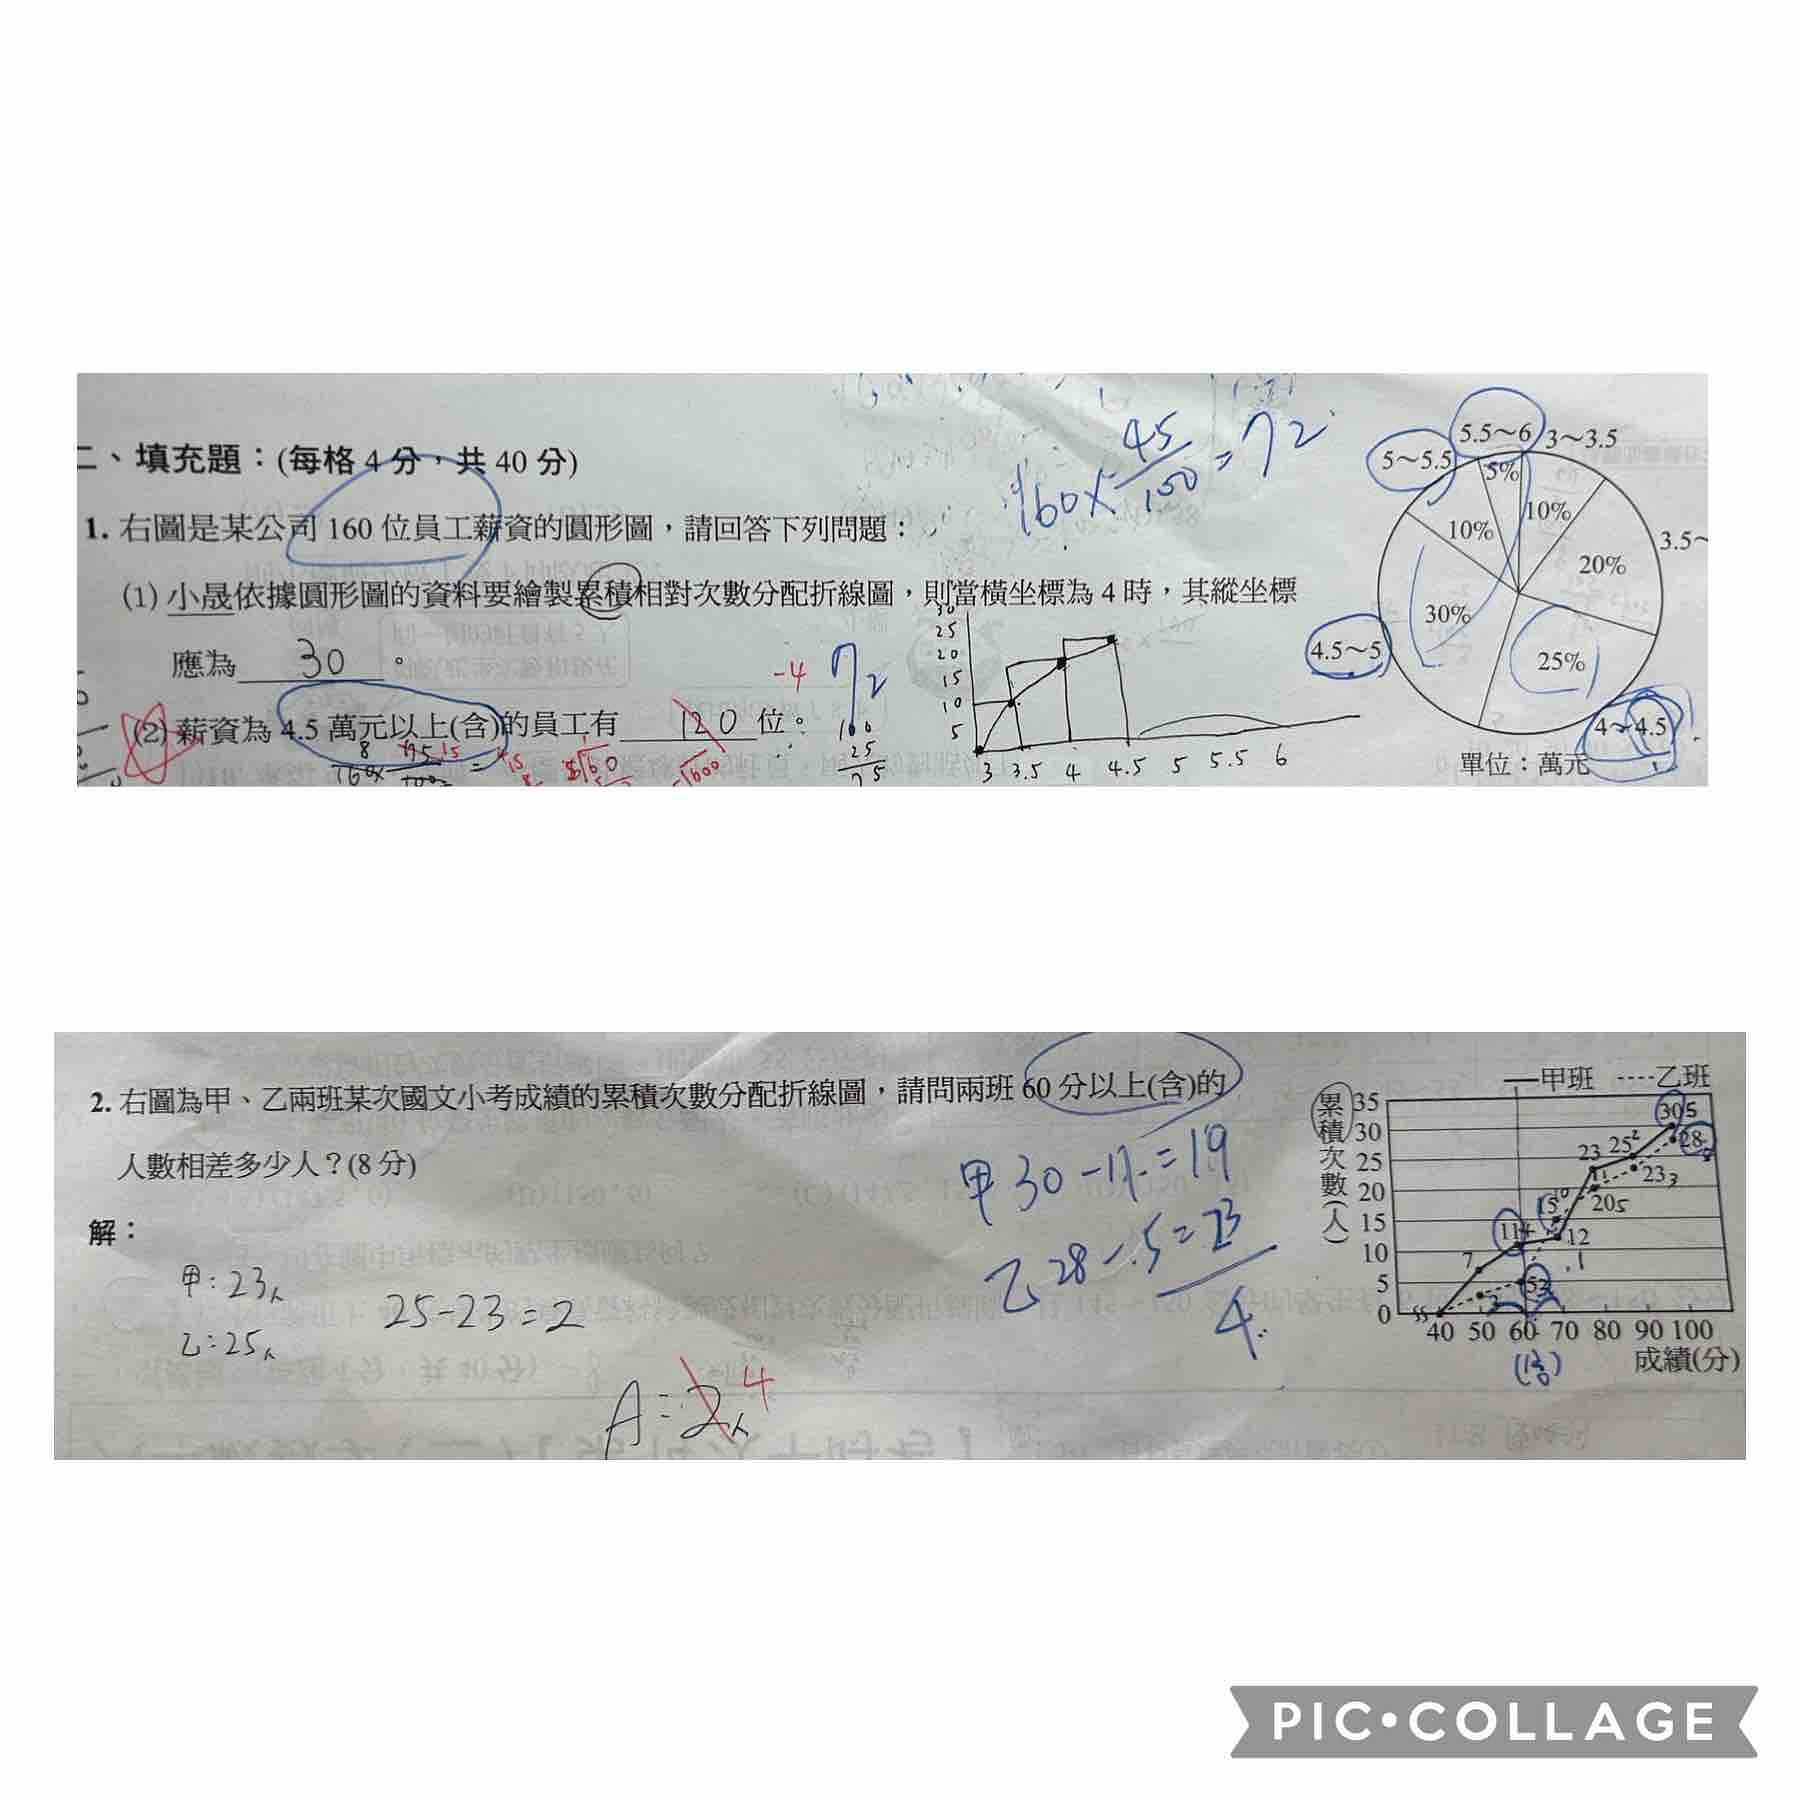 二、填充題：(每格 4 分，共 40 分)
1. 右圖是某公司 160 位員工薪資的圓形圖，請回答下列問題：
(1) 小晟依據圓形圖的資料要繪製累積相對次數分配折線圖，則當橫坐標為 4 時，其縱坐標
應為 30 。
(2) 薪資為 4.5 萬元以上(含)的員工有 120 位。
-4
72
160×45/100=72
100
25
75
30
25
20
15
10
5
3 3.5 4 4.5 5 5.5 6
5.5～6 3～3.5
5～5.5
5%
10%
10%
20%
3.5~
30%
25%
4.5～5
4～4.5
單位：萬元
2. 右圖為甲、乙兩班某次國文小考成績的累積次數分配折線圖，請問兩班 60 分以上(含)的
人數相差多少人？(8 分)
解：
甲：23人
乙：25人
25-23=2
A：2人 4
甲 30-11=19
乙 28-5=23
4
甲班 乙班
累積次數(人)
35
30
25
20
15
10
5
0
30 5
28
23 25 2
23 3
20 5
15 10
11 4
12
7
5 2
3
40 50 60 70 80 90 100
(含)
成績(分)
PIC•COLLAGE